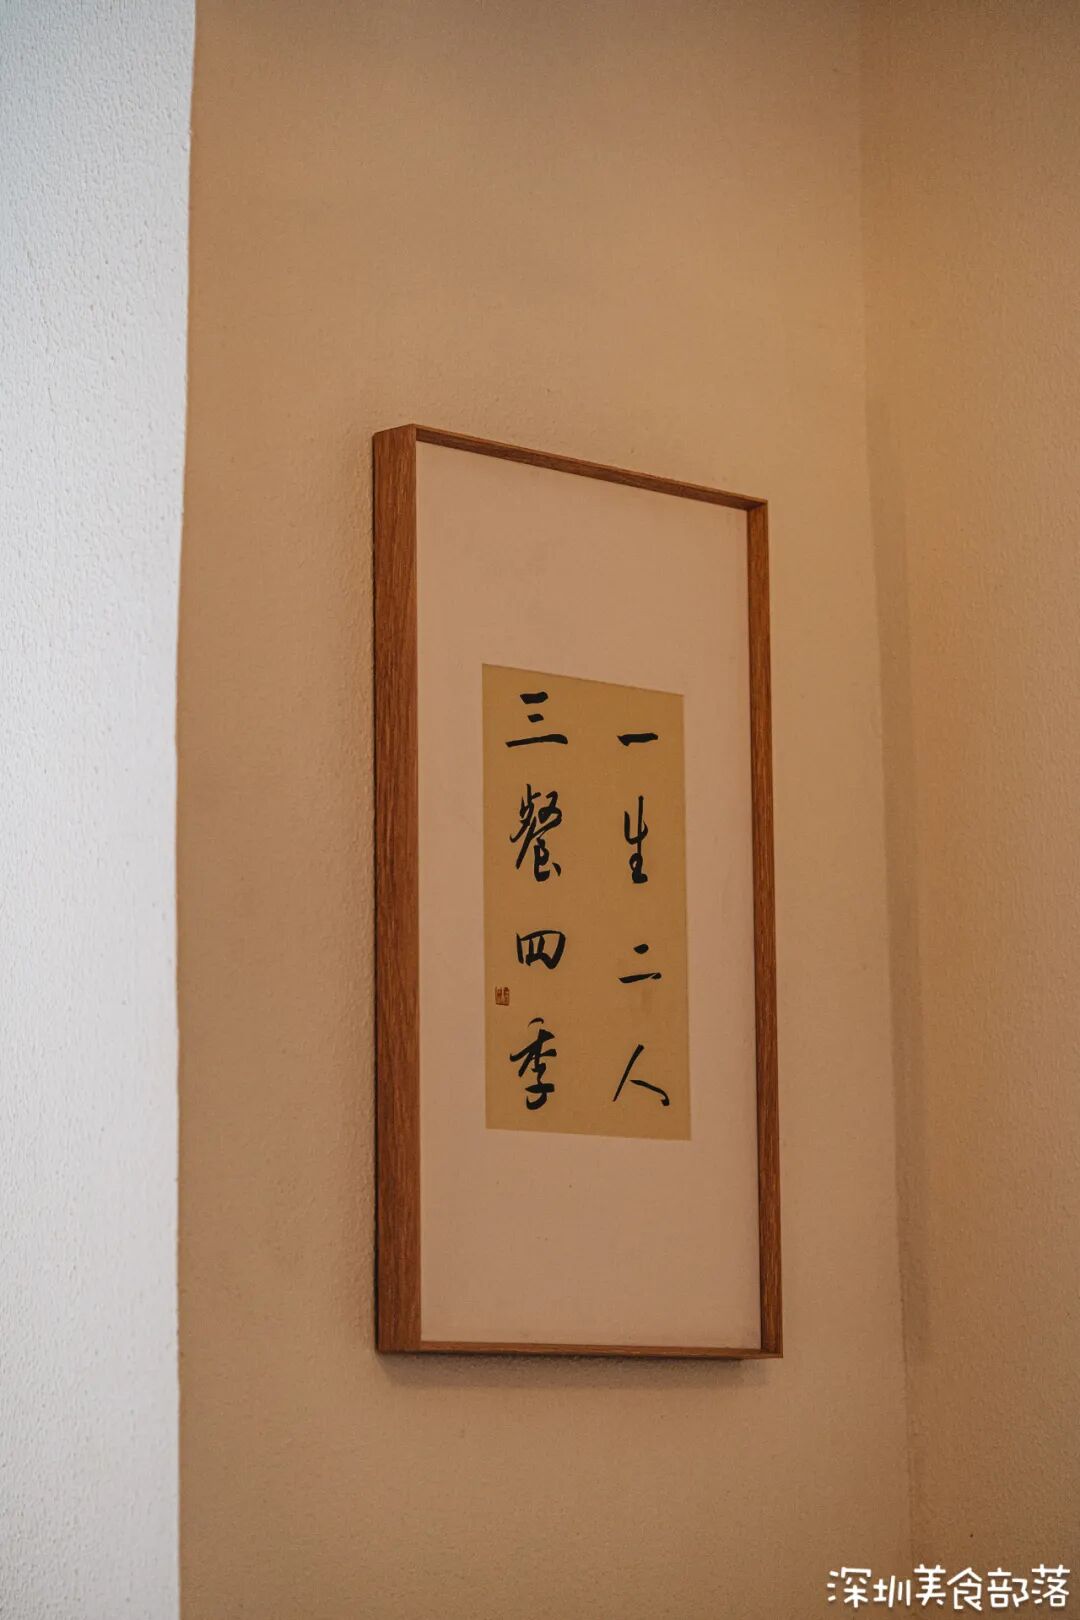 一生二人
三餐四季
深圳美食部落